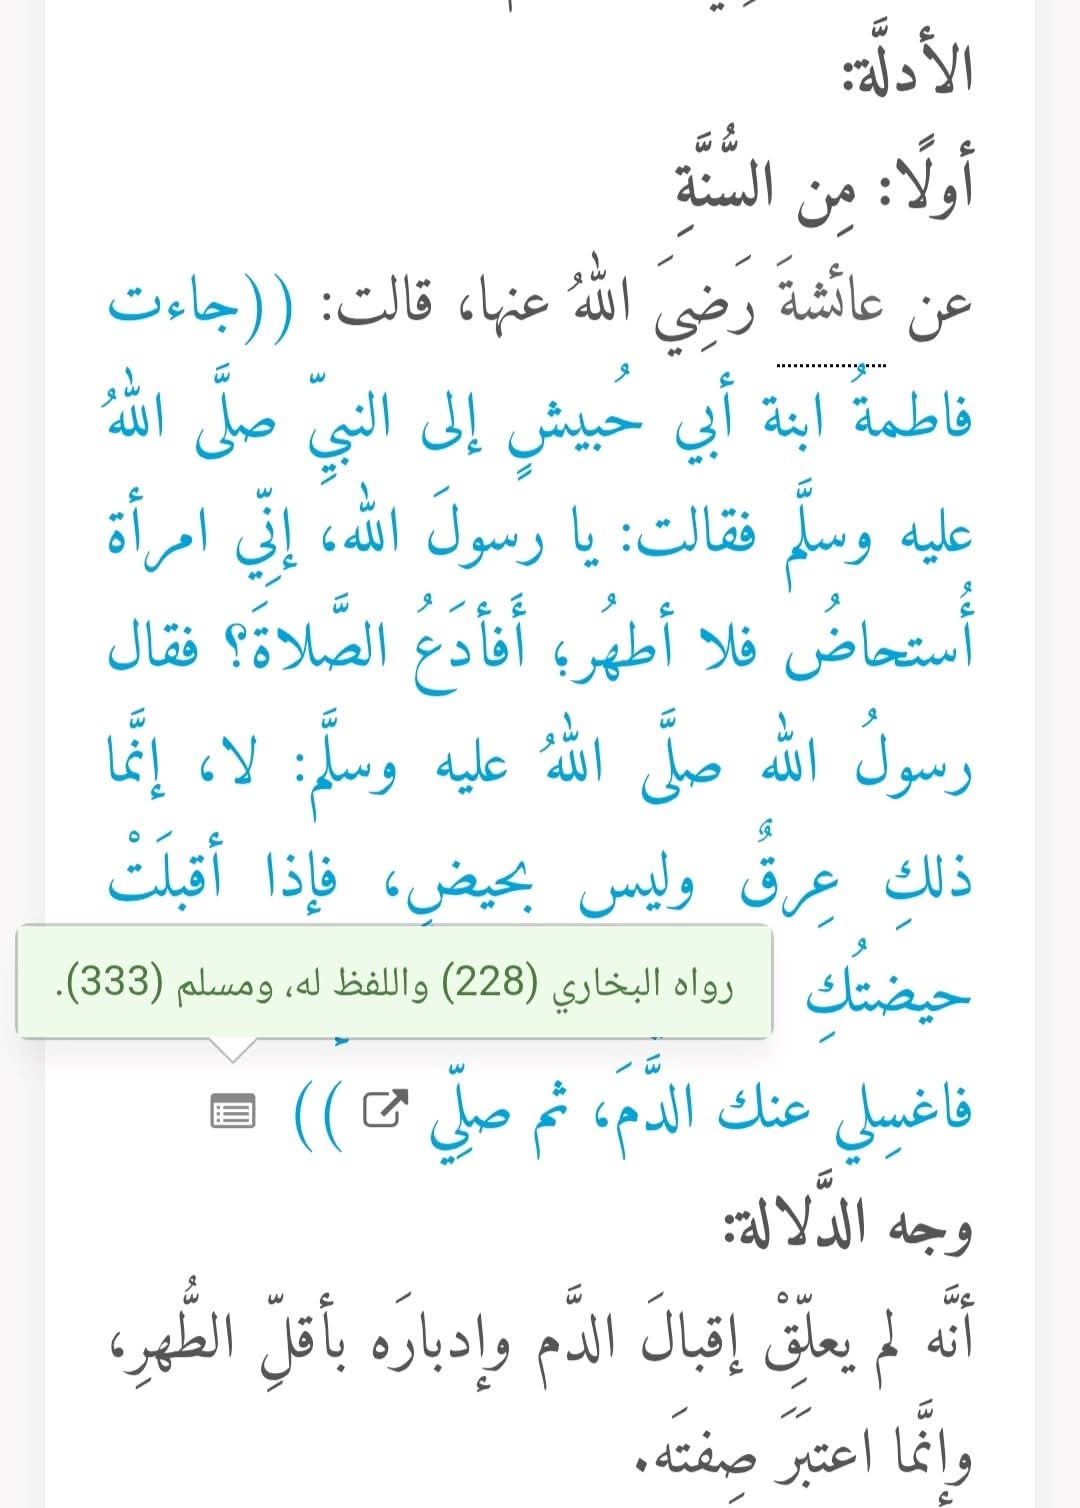 الأدلَّة:
أولًا: مِن السُّنَّةِ
عن عائشةَ رَضِيَ اللهُ عنها، قالت: ((جاءت
فاطمةُ ابنة أبي حُبيشٍ إلى النبيِّ صلَّى اللهُ
عليه وسلَّم فقالت: يا رسولَ الله، إنِّي امرأة
أُستحاضُ فلا أطهُر؛ أَفأَدَعُ الصَّلاةَ؟ فقال
رسولُ الله صلَّى اللهُ عليه وسلَّم: لا، إنَّما
ذلكِ عِرقٌ وليس بحيضٍ، فإذا أقبلَتْ
حيضتُكِ
رواه البخاري (228) واللفظ له، ومسلم (333).
فاغسِلي عنك الدَّمَ، ثم صلِّي ))
وجه الدَّلالة:
أنَّه لم يعلِّقْ إقبالَ الدَّم وإدبارَه بأقلِّ الطُّهرِ،
وإنَّما اعتبَرَ صِفتَه.